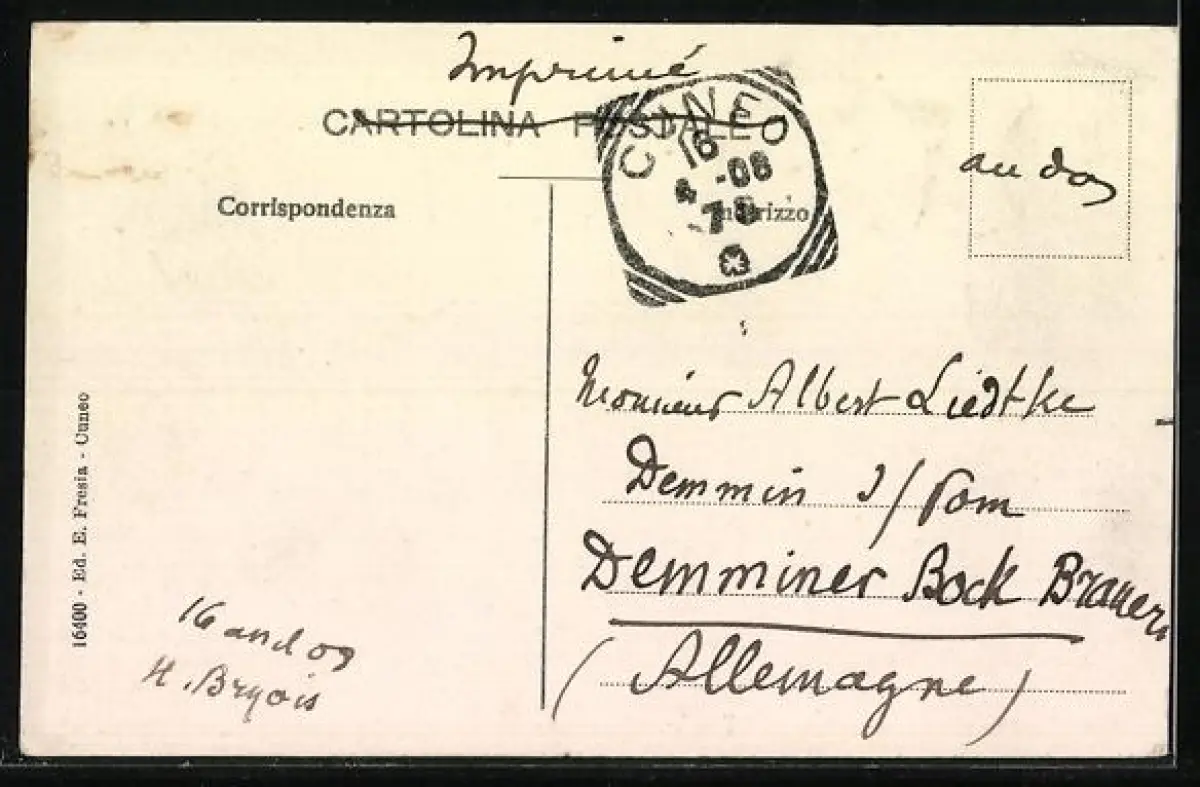 Imprimé
CARTOLINA POSTALE
CUNEO
16
4 -08
au dos
Corrispondenza
Indirizzo
Monsieur Albert Liedtke
Demmin i/Pom
Demminer Bock Brauerei
(Allemagne)
16400 - Ed. E. Fresia - Cuneo
16
H. Bryois